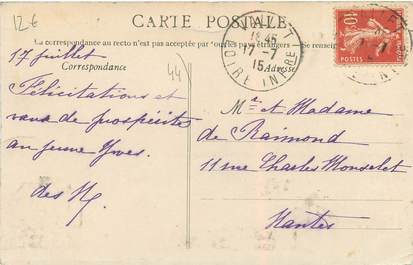 12€
CARTE POSTALE
La correspondance au recto n'est pas acceptée par tous les pays étrangers — Se rensei
Correspondance
Adresse
44
18 45
17-7
15
LOIRE INFRE
10
POSTES
17 juillet
Félicitations et
vœux de prospérités
au jeune Yves.
des N.
Mr et Madame
de Raimond
11 rue Charles Monselet
Nantes